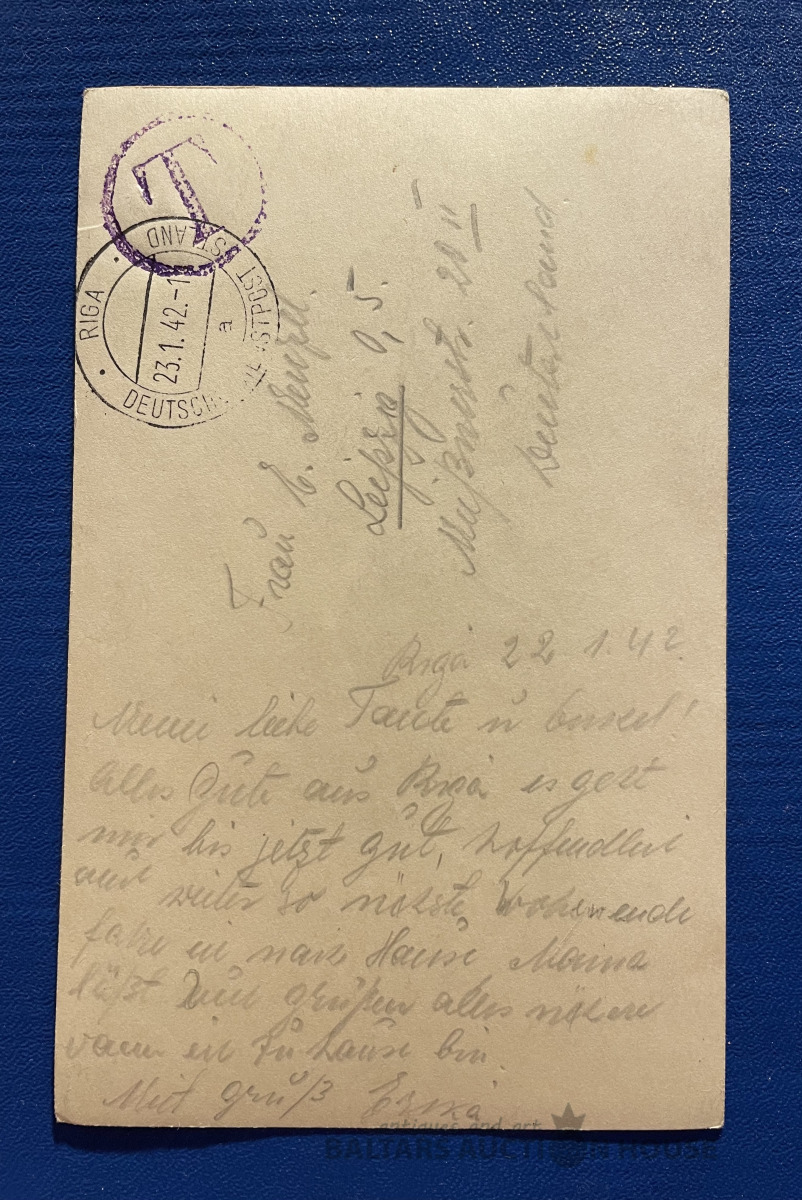 T
RIGA
OSTLAND
23.1.42.-1
a
DEUTSCHE DIENSTPOST
Frau E.
Leipzig O, 5.
28 II
Deutschland
Riga 22 1.42.
Meine liebe Tante u
Alles Gute aus Riga es geht
mir bis jetzt gut, hoffendlich
auch weiter so nökste Wohenende
fahre ich nach Hause Mama
läßt Dich grüßen alles nöhere
wann ich zu hause bin
Mit gruß Erika
antiques and art
BALTARS AUCTION HOUSE